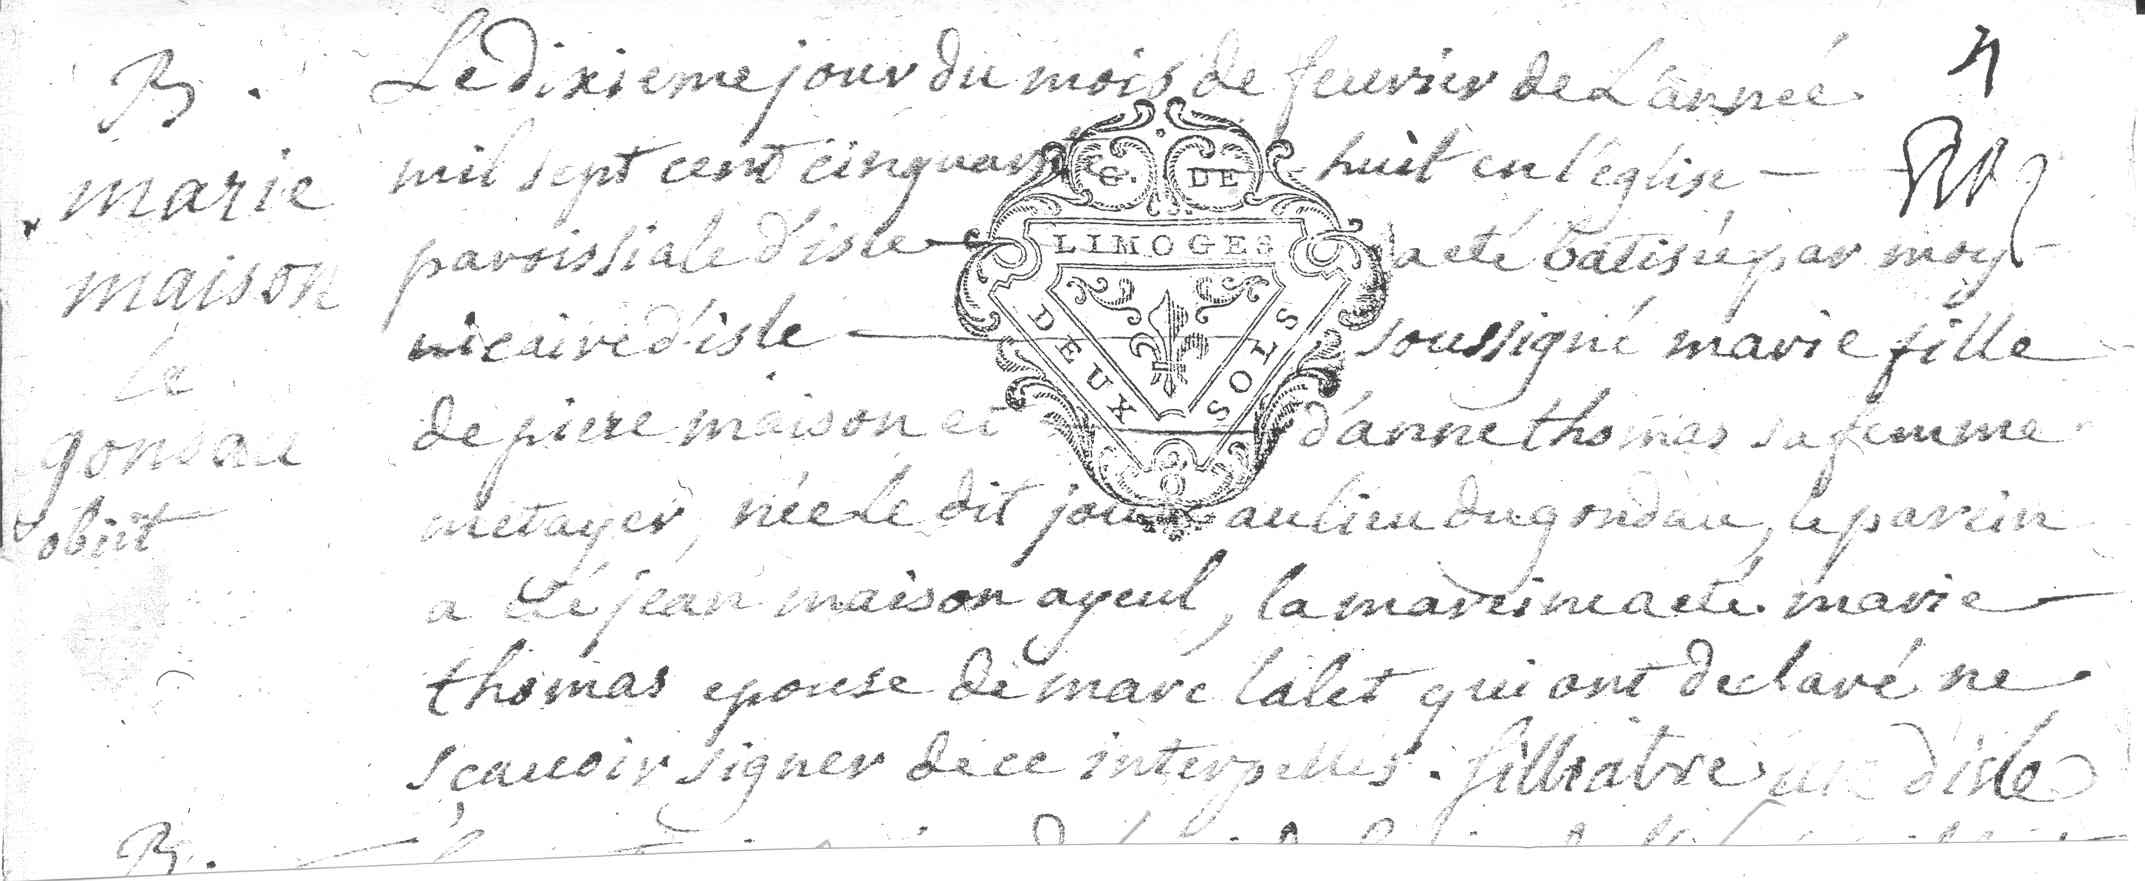 B.
marie
maison
le
gondau
obiit
Le dixieme jour du mois de feuvrier de L'année
mil sept cent cinquante huit en l'eglise
paroissiale d'isle a eté batisée par moy
vicaire d'isle soussigné marie fille
de piere maison et d'anne thomas sa femme
metayer, née Le dit jour au lieu du gondau, le parein
a eté jean maison ayeul, la mareine a eté marie
thomas epouse de marc lalet qui ont declaré ne
sçauoir signer de ce interpellés. filliatre vic d'isle
4
G. DE
LIMOGES
DEUX SOLS
B.